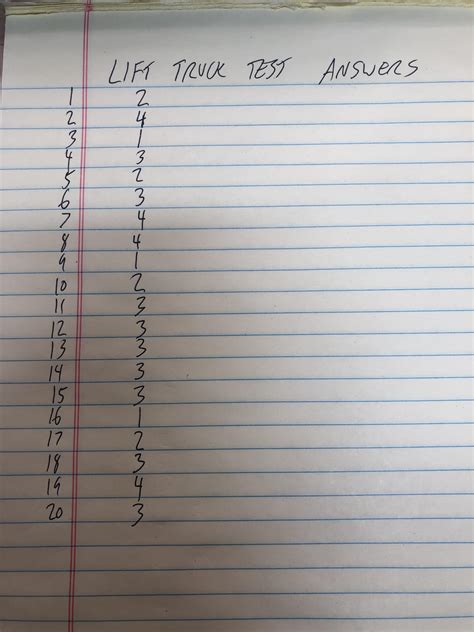 LIFT TRUCK TEST ANSWERS
1 2
2 4
3 1
4 3
5 2
6 3
7 4
8 4
9 1
10 2
11 3
12 3
13 3
14 3
15 3
16 1
17 2
18 3
19 4
20 3